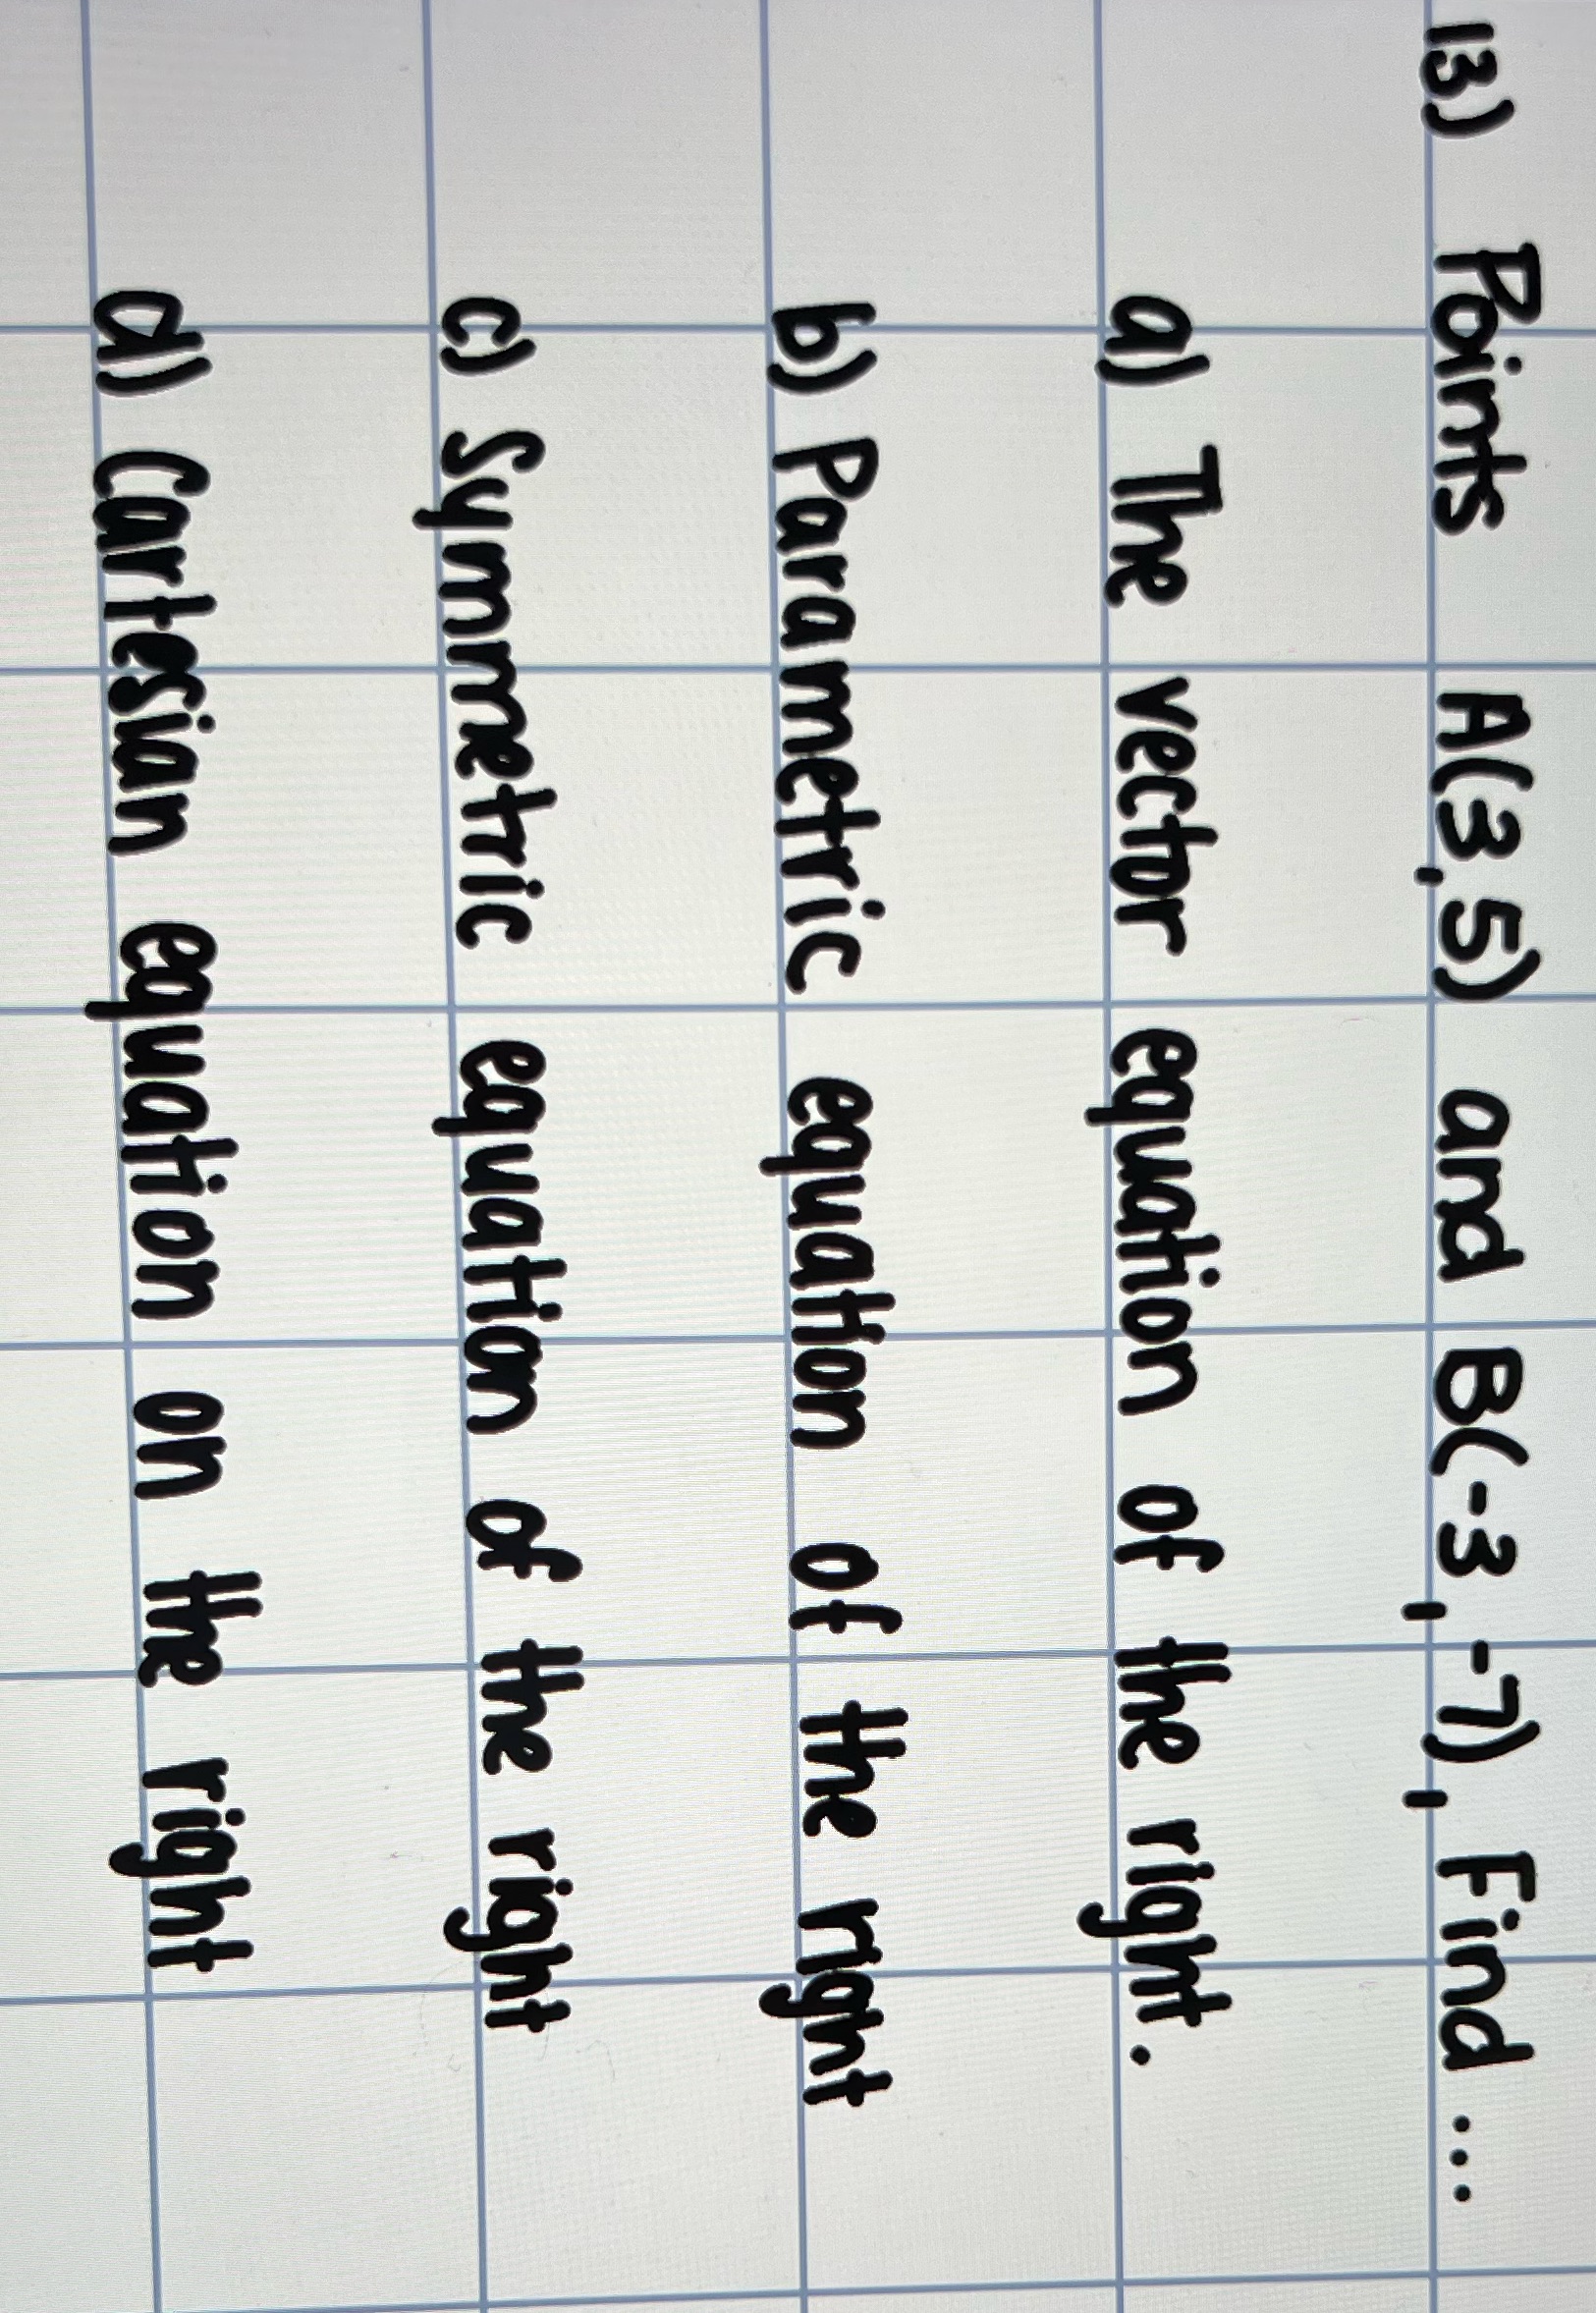 13) Points A(3,5) and B(-3,-7), Find...
a) The vector equation of the right.
b) Parametric equation of the right
c) Symmetric equation of the right
d) Cartesian equation on the right